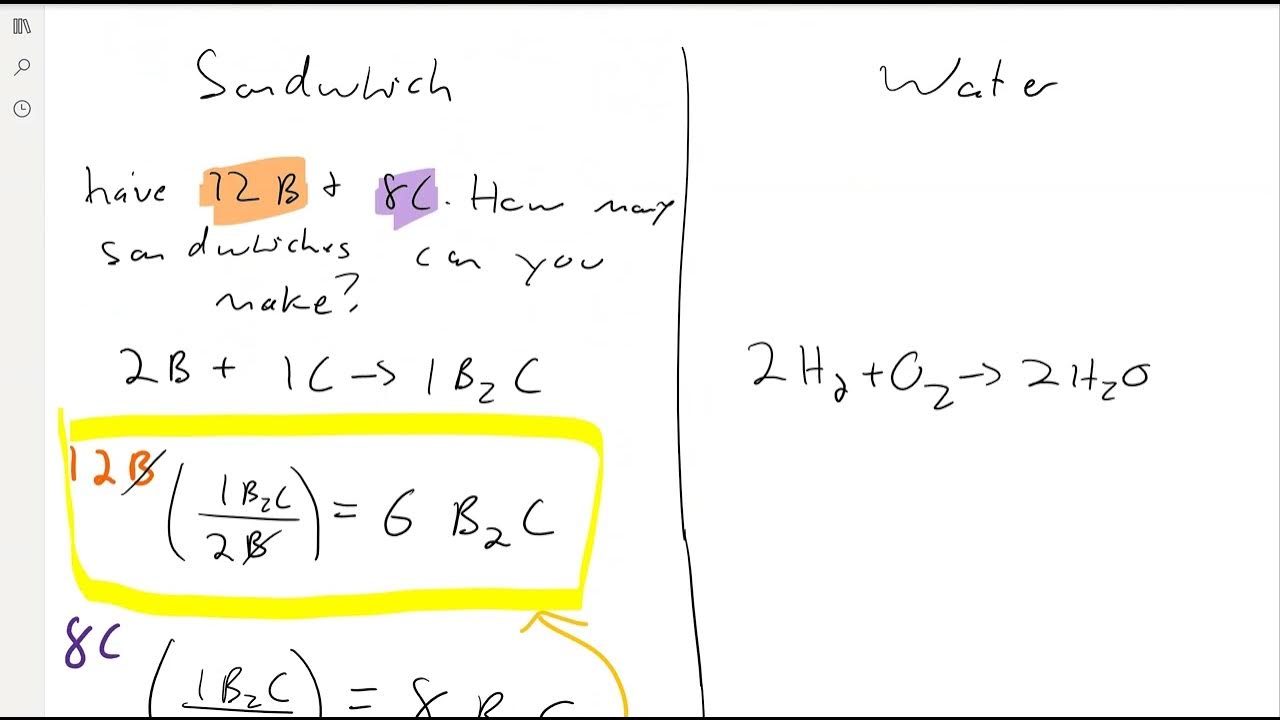 Sandwhich
have 12 B + 8C. How many
sandwhiches can you
make?
2B + 1C → 1 B₂ C
12B (1B₂C / 2B) = 6 B₂ C
8C
(1B₂C = 8 B₂ C
Water
2H₂ + O₂ → 2H₂O